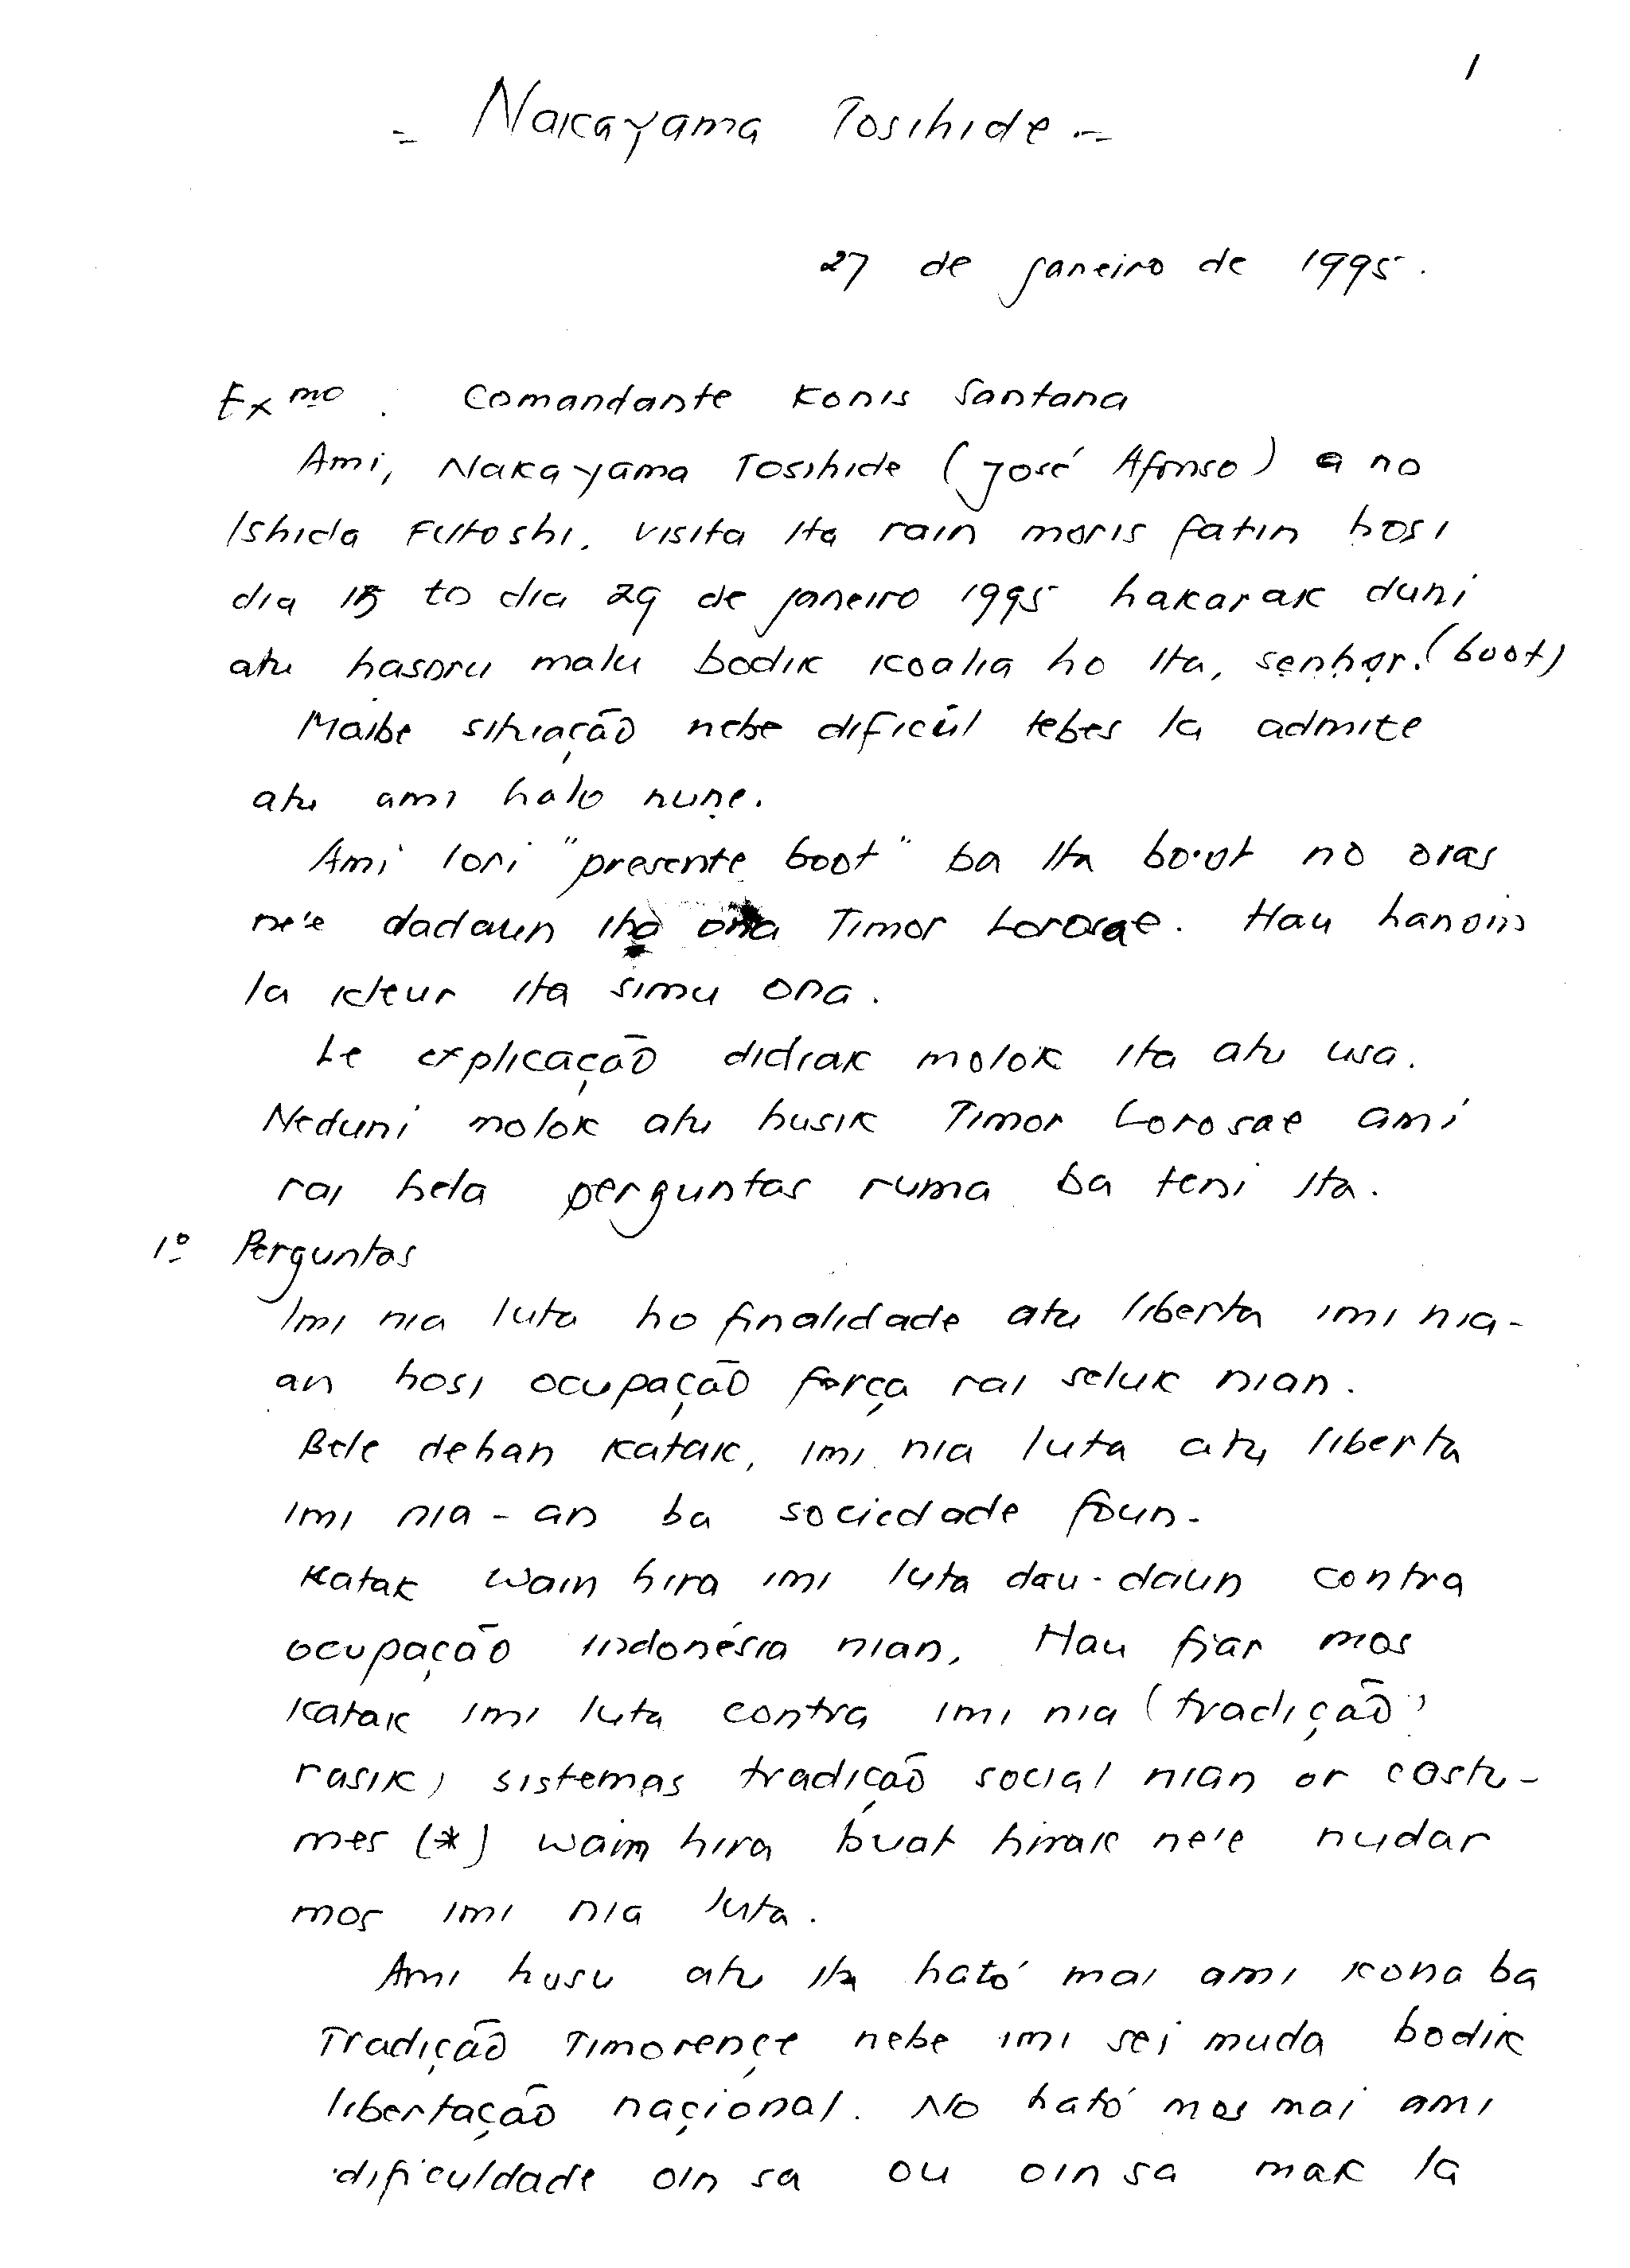 1
= Nakayama Tosihide =
27 de janeiro de 1995.
Exmo. Comandante Konis Santana
Ami, Nakayama Tosihide (José Afonso) a no
Ishida Futoshi. visita Ita rain moris fatin hosi
dia 15 to dia 29 de janeiro 1995 hakarak duni
atu hasoru malu bodik koalia ho Ita, senhor. (boot)
Maibe situação nebe dificúl tebes la admite
atu ami halo nune.
Ami lori "presente boot" ba Ita bo-ot no oras
ne'e dadaun iha ona Timor Lorosae. Hau hanoin
la kleur ita simu ona.
Le explicação didiak molok ita atu usa.
Neduni molok atu husik Timor Lorosae ami
rai hela perguntas ruma ba teni Ita.
1º Perguntas
Imi nia luta ho finalidade atu liberta imi nia-
an hosi ocupação força rai seluk nian.
Bele dehan katak, imi nia luta atu liberta
imi nia-an ba sociedade foun.
Katak wain hira imi luta dau-daun contra
ocupação Indonésia nian, Hau fiar mos
katak imi luta contra imi nia (tradição
rasik) sistemas tradição social nian or costu-
mes (*) wain hira buat hirak ne'e nudar
mos imi nia luta.
Ami husu atu ita ható mai ami kona ba
Tradição Timorençe nebe imi sei muda bodik
libertação naçional. No ható mos mai ami
dificuldade oin sa ou oin sa mak la